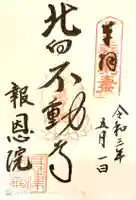 奉拝
令和三年
五月一日
北向不動尊
報恩院